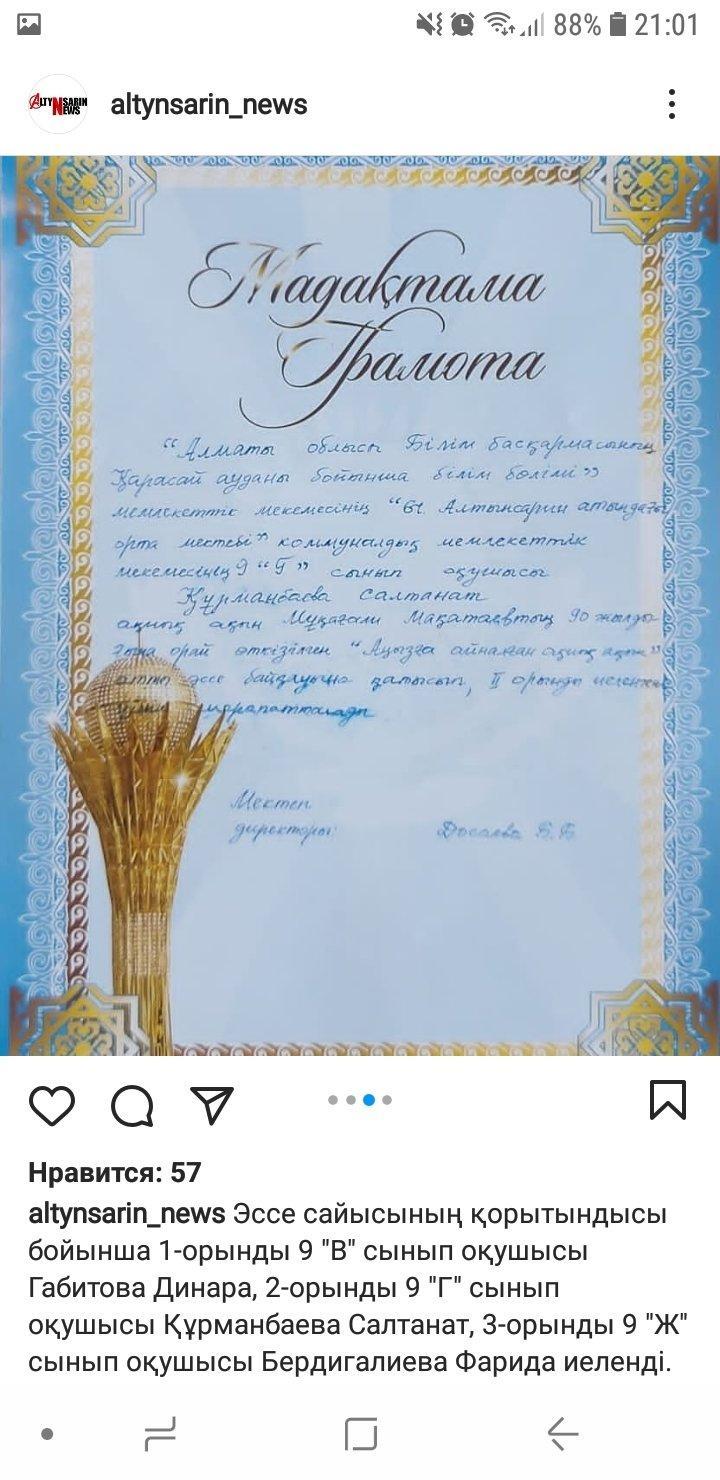 88% 21:01
ALTYNSARIN
NEWS
altynsarin_news
Мадақтама
Грамота
"Алматы облысы Білім басқармасының
Қарасай ауданы бойынша білім бөлімі"
мемлекеттік мекемесінің Алтынсарин атындағы
орта мектебі" коммуналдық мемлекеттік
мекемесінің 9 "Г" сынып оқушысы
Құрманбаева Салтанат
ақиық ақын Мұқағали Мақатаевтың 90 жылды
ғына орай өткізілген "Аңызға айналған ақиық ақын"
атты эссе байқауына қатысып, II орынды иеленгені
үшін марапатталады
Мектеп
директоры: Досаева Б.Б
Нравится: 57
altynsarin_news Эссе сайысының қорытындысы
бойынша 1-орынды 9 "В" сынып оқушысы
Габитова Динара, 2-орынды 9 "Г" сынып
оқушысы Құрманбаева Салтанат, 3-орынды 9 "Ж"
сынып оқушысы Бердигалиева Фарида иеленді.